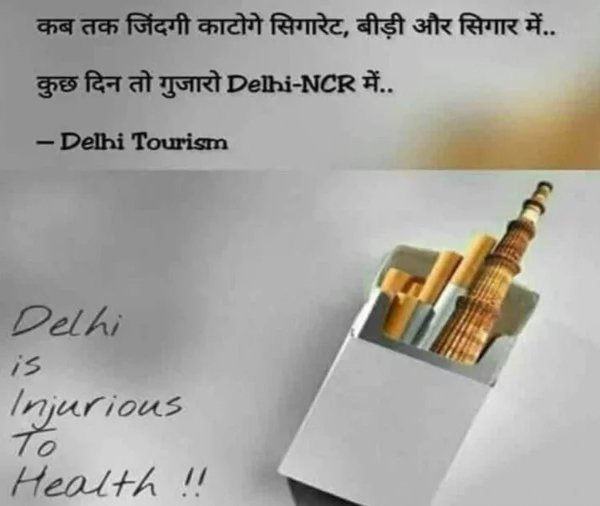 कब तक जिंदगी काटोगे सिगारेट, बीड़ी और सिगार में..
कुछ दिन तो गुजारो Delhi-NCR में..
– Delhi Tourism
Delhi
is
Injurious
To
Health !!